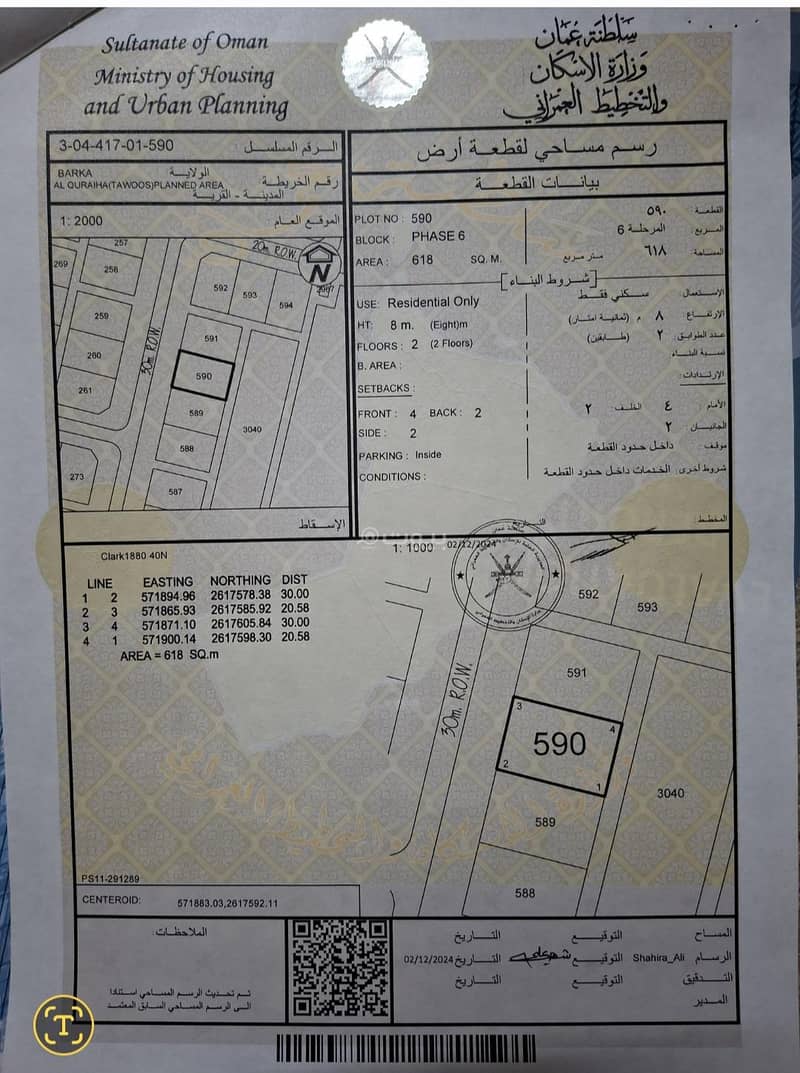 Sultanate of Oman
Ministry of Housing
and Urban Planning
سلطنة عمان
وزارة الإسكان
والتخطيط العمراني
3-04-417-01-590
الرقم المسلسل :
BARKA
الولاية
AL QURAIHA(TAWOOS)PLANNED AREA
رقم الخريطة :
المدينة - القرية
1: 2000
الموقع العام :
20m R.O.W.
N
30m R.O.W.
257
269
258
259
260
261
273
592
593
594
591
590
589
588
587
3040
الإسقاط
رسم مساحي لقطعة أرض
بيانات القطعة
PLOT NO : 590
القطعة : ٥٩٠
BLOCK : PHASE 6
المربع : المرحلة 6
AREA : 618 SQ. M.
المساحة : ٦١٨ متر مربع
شروط البناء
USE: Residential Only
الإستعمال : سكني فقط
HT: 8 m. (Eight)m
الإرتفاع : ٨ م (ثمانية امتار)
FLOORS : 2 (2 Floors)
عدد الطوابق : ٢ (طابقين)
B. AREA :
نسبة البناء
SETBACKS :
الإرتدادات :
FRONT : 4 BACK : 2
الأمام : ٤ الخلف : ٢
SIDE : 2
الجانبان : ٢
PARKING : Inside
موقف : داخل حدود القطعة
CONDITIONS :
شروط اخرى : الخدمات داخل حدود القطعة
المخطط :
التاريخ
Clark1880 40N
1: 1000
02/12/2024
LINE EASTING NORTHING DIST
1 2 571894.96 2617578.38 30.00
2 3 571865.93 2617585.92 20.58
3 4 571871.10 2617605.84 30.00
4 1 571900.14 2617598.30 20.58
AREA = 618 SQ.m
30m. R.O.W.
592
593
591
3
4
590
2
1
589
3040
588
PS11-291289
CENTEROID: 571883.03,2617592.11
الملاحظات :
تم تحديث الرسم المساحي استنادا
الى الرسم المساحي السابق المعتمد
المساح التوقيع التاريخ
الرسام Shahira_Ali التوقيع التاريخ 02/12/2024
التدقيق التوقيع التاريخ
المدير
T